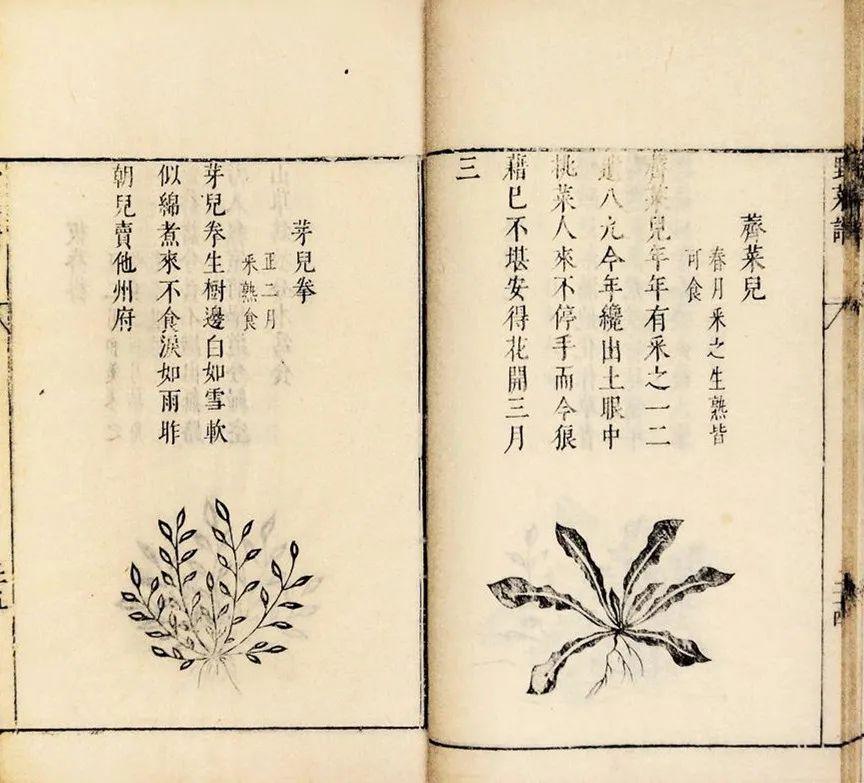 野菜譜
薺菜兒
春月釆之生熟皆
可食
薺菜兒年年有釆之一二
遺八九今年纔出土眼中
挑菜人來不停手而今狼
藉已不堪安得花開三月
三
芽兒拳
正二月
釆熟食
芽兒拳生樹邊白如雪軟
似綿煮來不食淚如雨昨
朝兒賣他州府